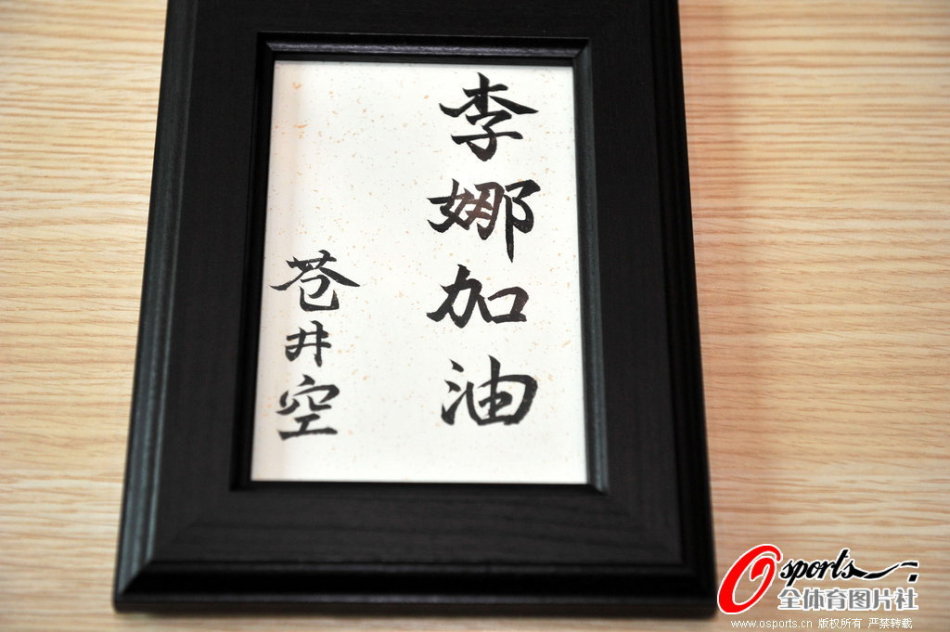 李娜加油
苍井空
Osports
全体育图片社
www.osports.cn 版权所有 严禁转载